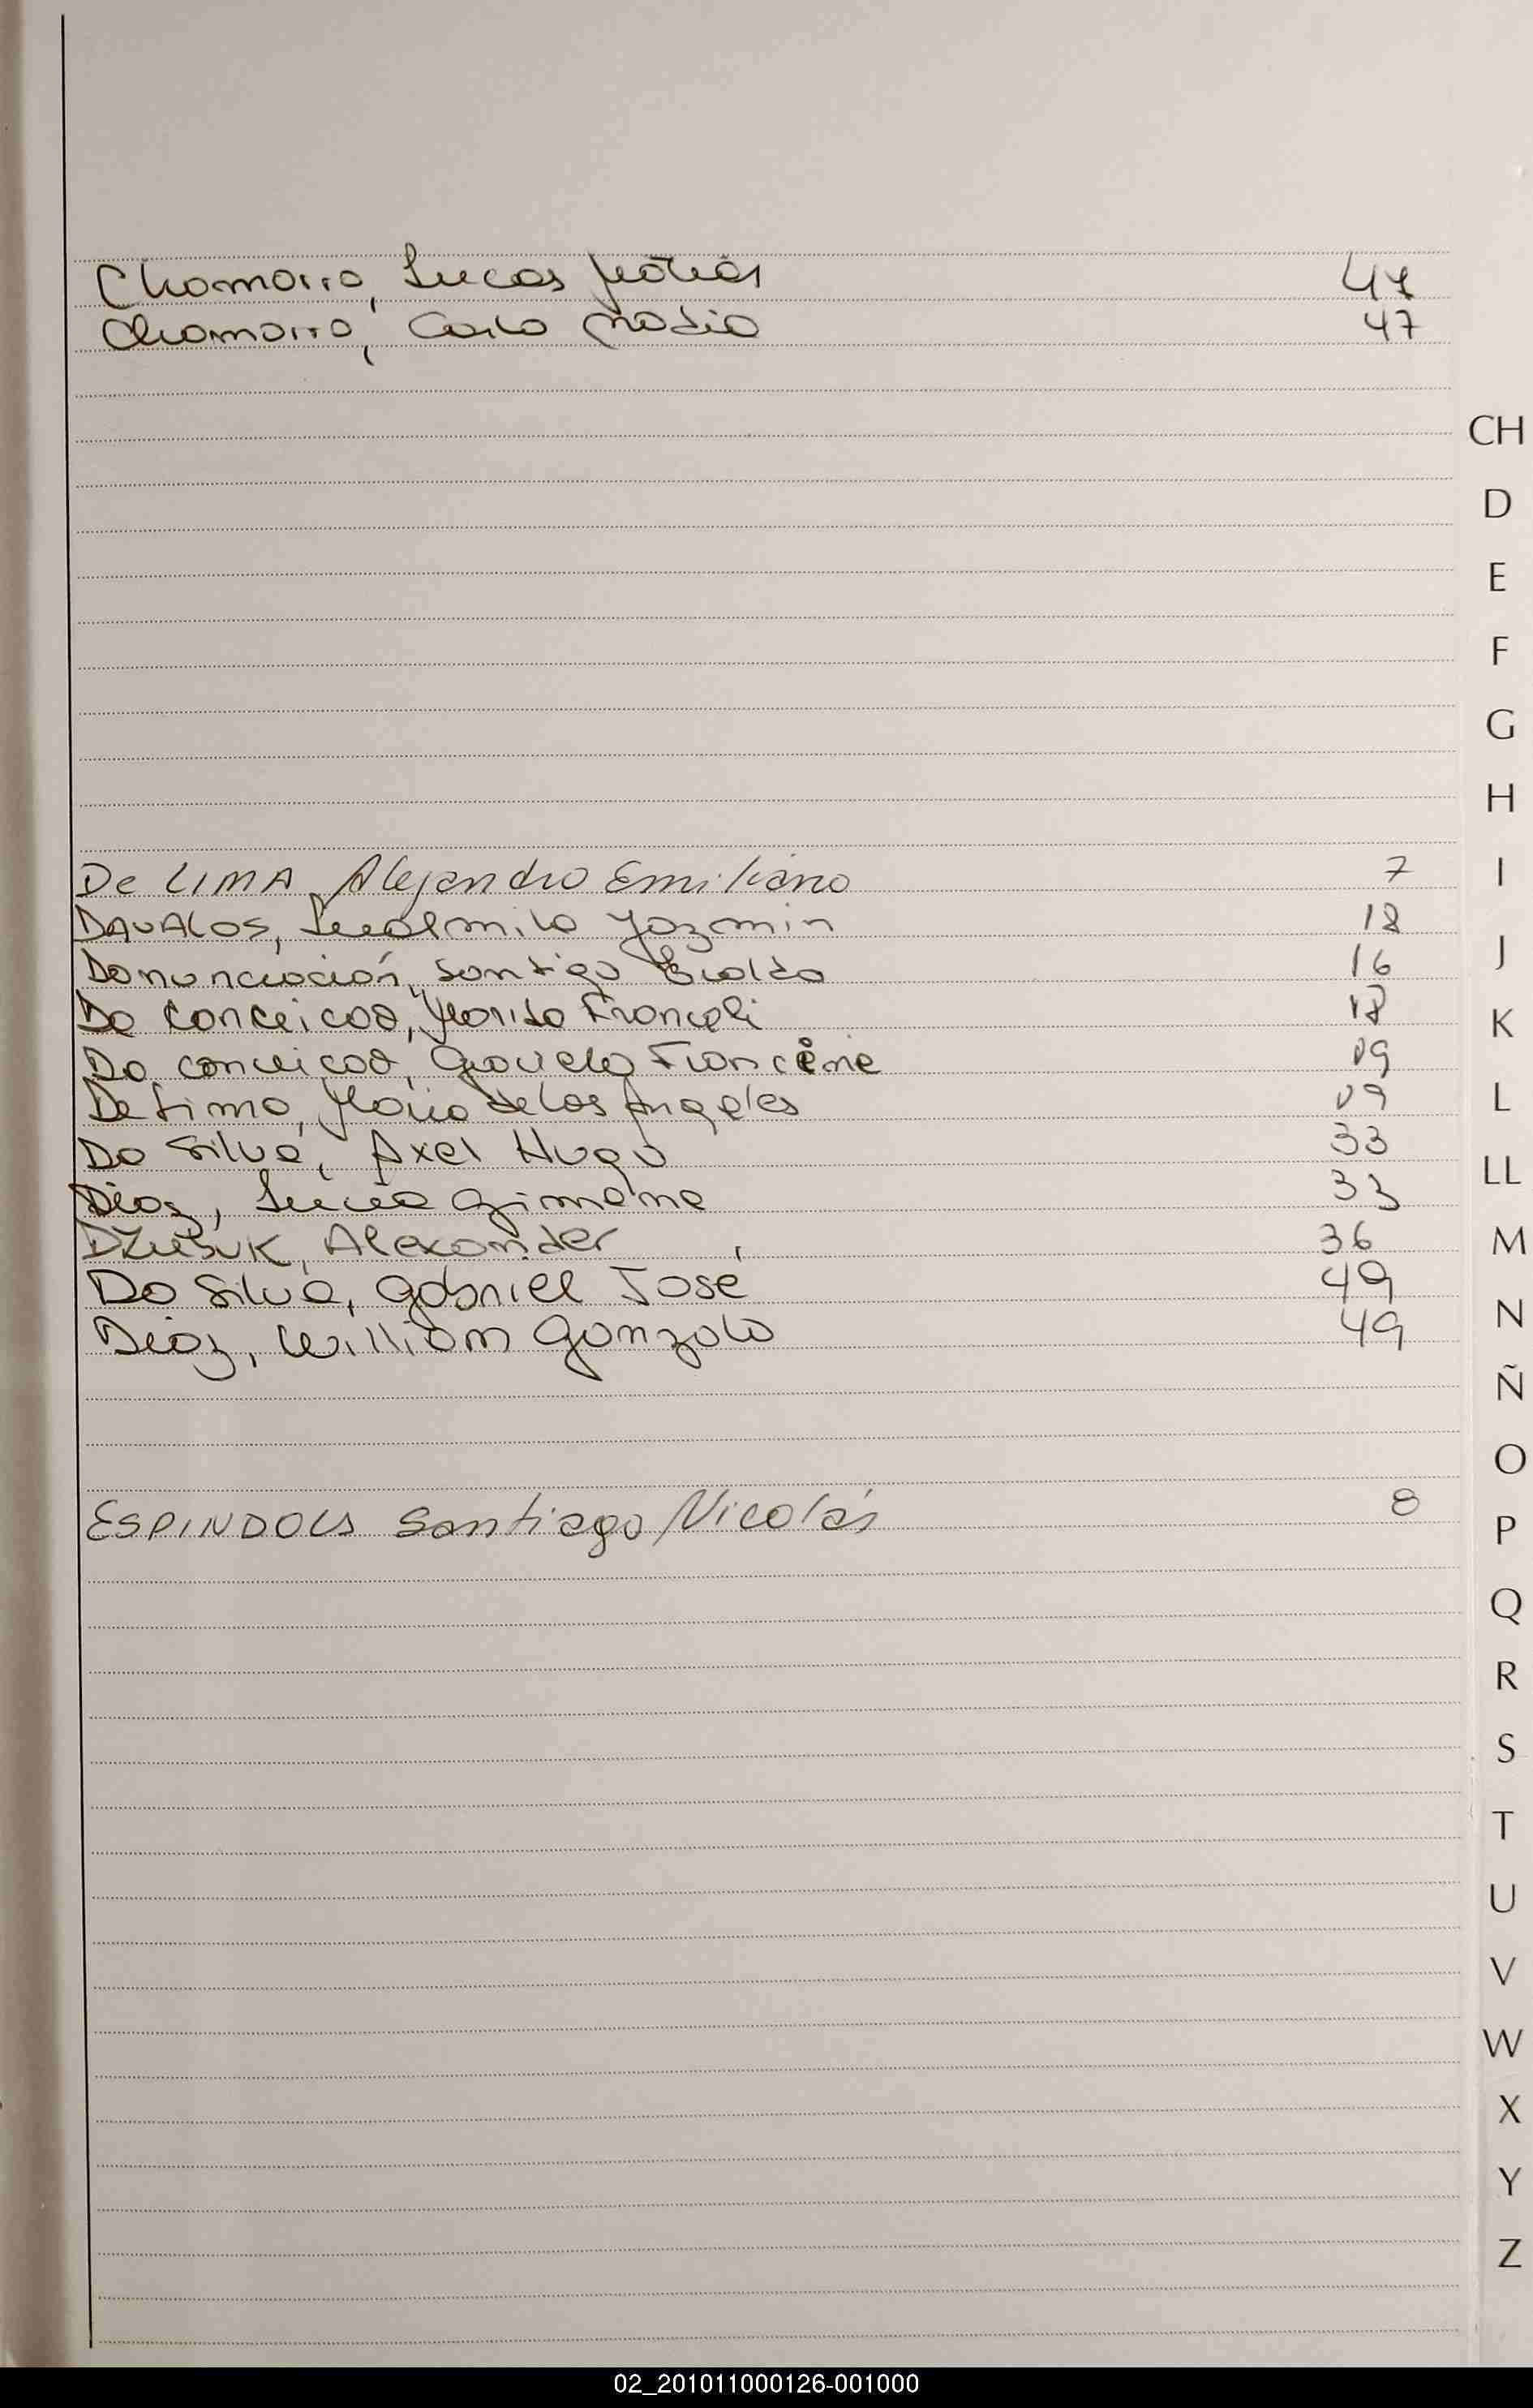 Chamorro, Lucas Matías 47
Chamorro, Carlo 47
CH
D
E
F
G
H
De LIMA, Alejandro Emiliano 7 I
DAVALOS, Ludmila Yazmin 18
Santigo 16 J
Da Conceicoa, Francoli 18 K
Da conceicoa, Graciela Francine 19 L
De Lima, María de los Angeles 19
Da Silva, Axel Hugo 33 LL
Diaz, Lucia Gimena 33
Alexander 36 M
Da Silva, Gabriel José 49 N
Diaz, William Gonzalo 49
Ñ
O
ESPINDOLA Santiago Nicolás 8 P
Q
R
S
T
U
V
W
X
Y
Z
02_201011000126-001000